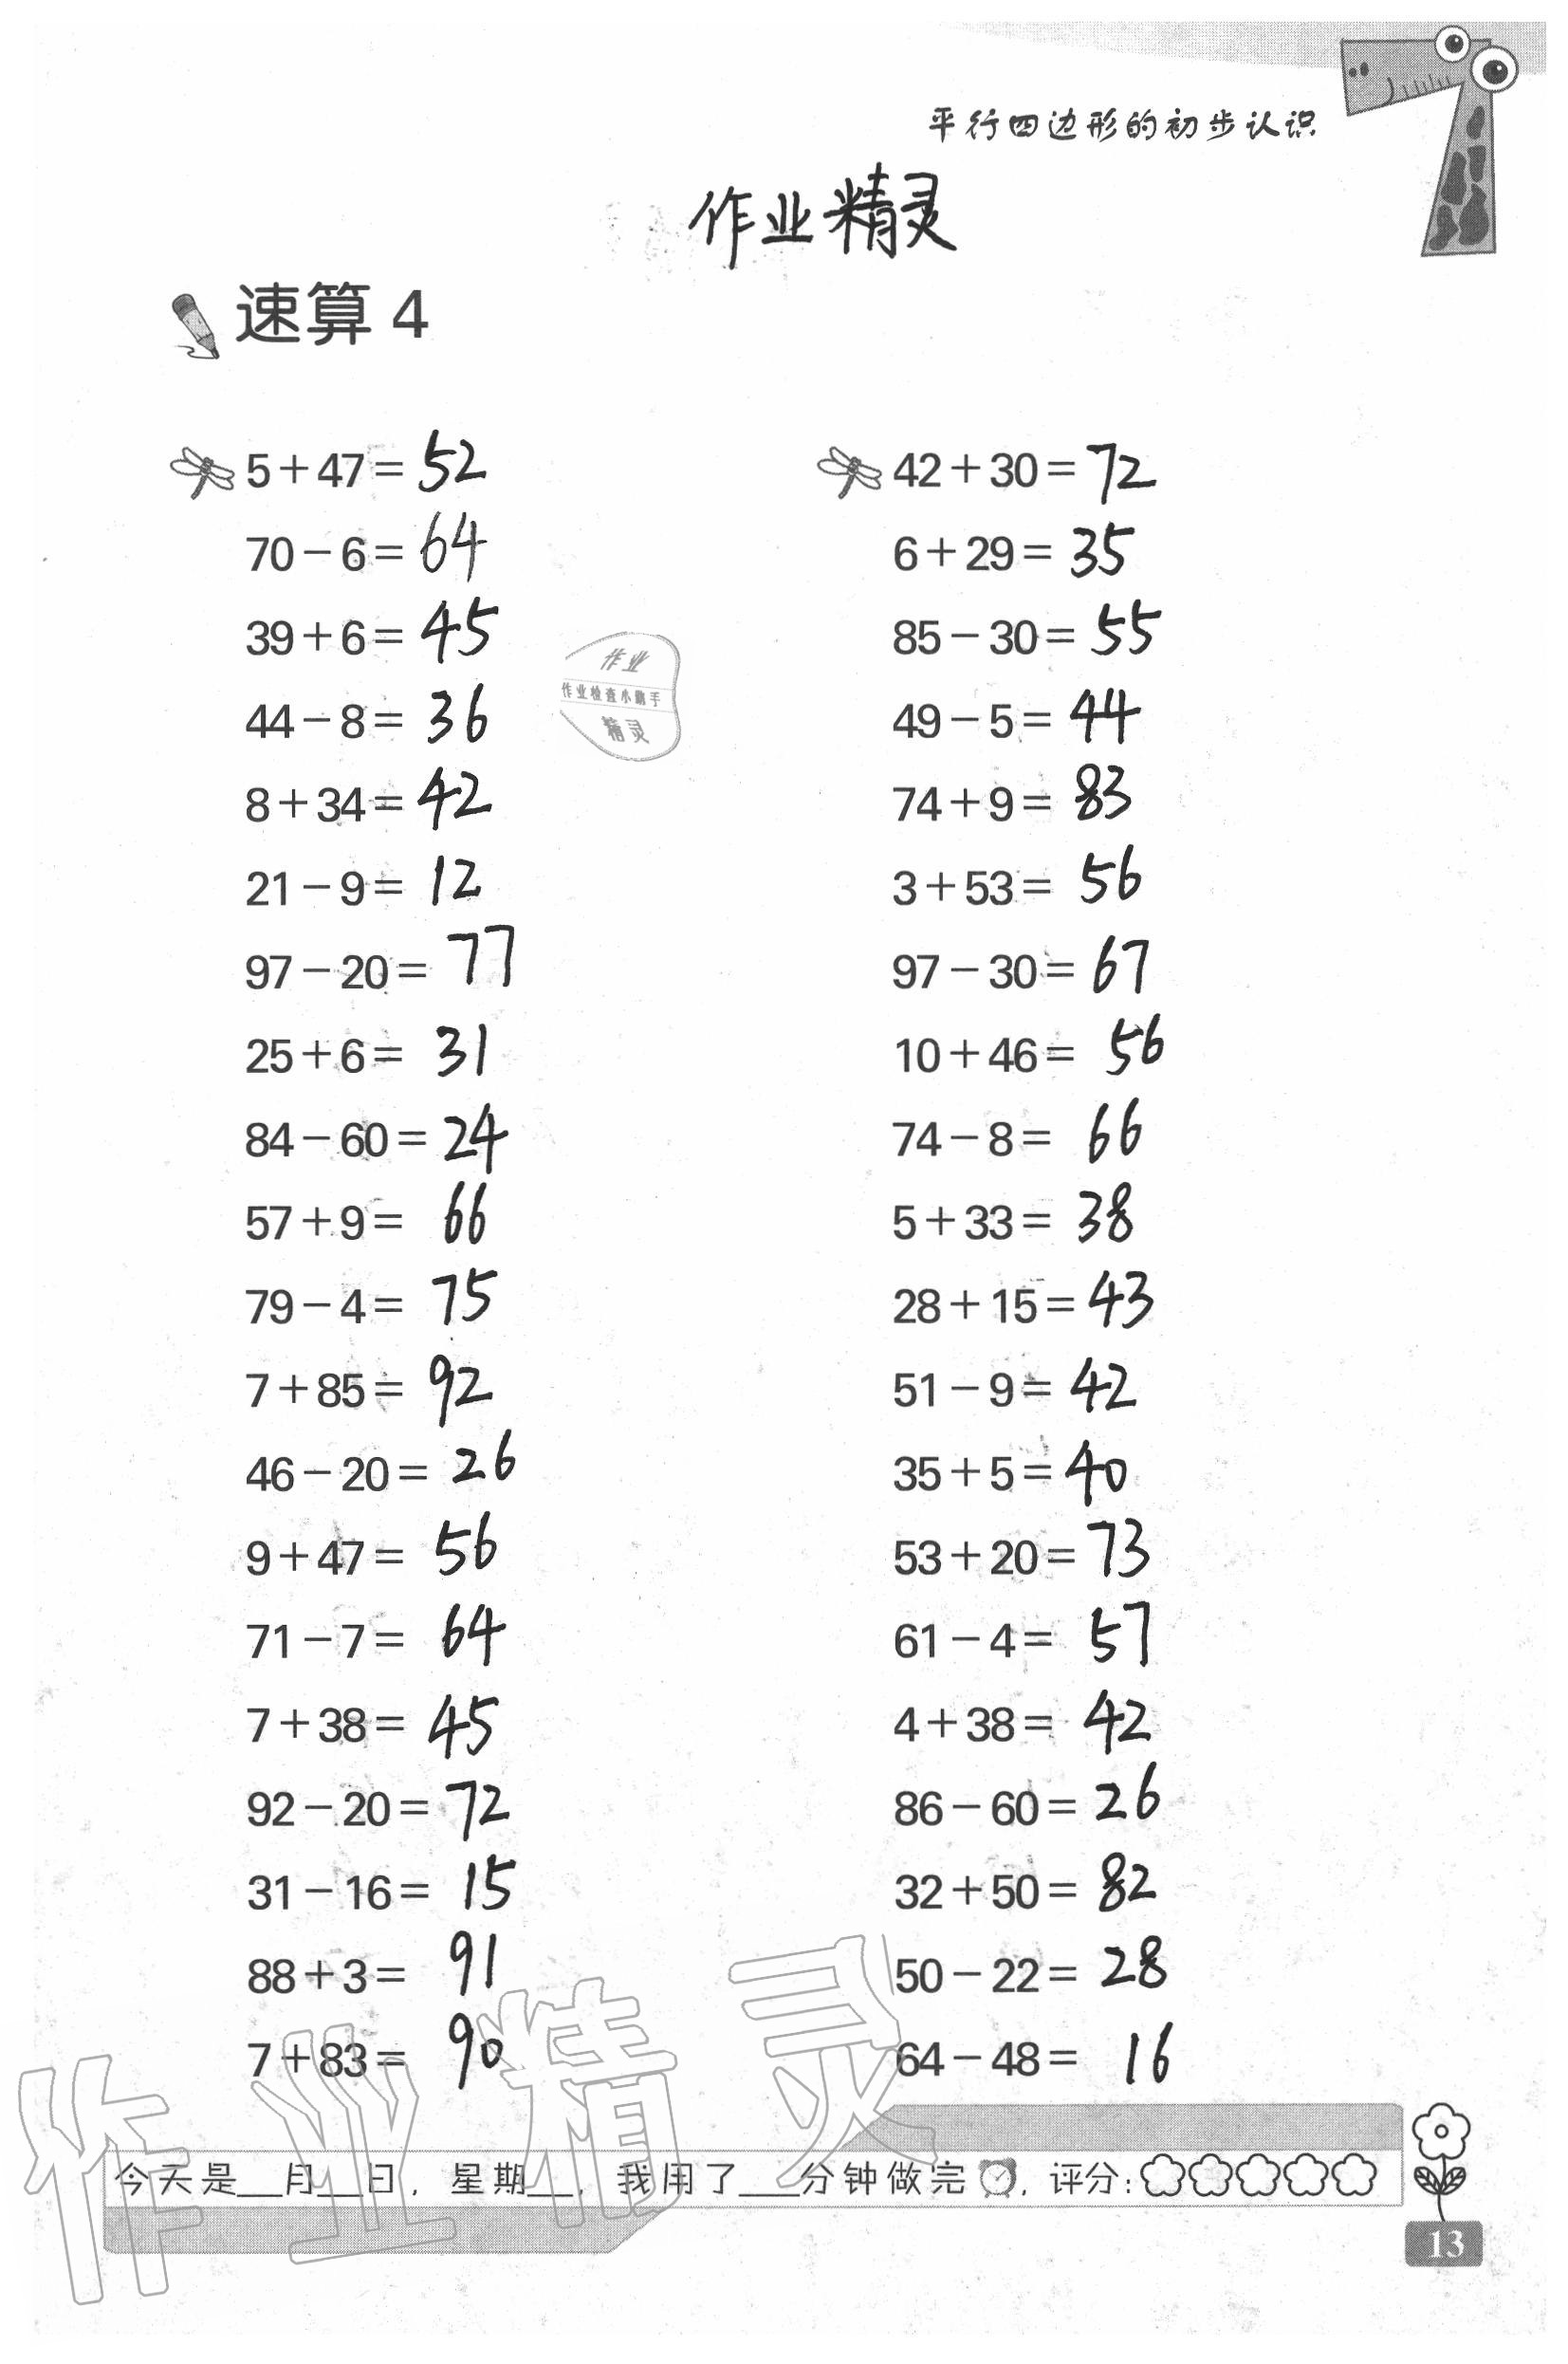 平行四边形的初步认识
作业精灵
速算 4
5+47=52
70-6=64
39+6=45
44-8=36
8+34=42
21-9=12
97-20=77
25+6=31
84-60=24
57+9=66
79-4=75
7+85=92
46-20=26
9+47=56
71-7=64
7+38=45
92-20=72
31-16=15
88+3=91
7+83=90
作业
作业检查小助手
精灵
42+30=72
6+29=35
85-30=55
49-5=44
74+9=83
3+53=56
97-30=67
10+46=56
74-8=66
5+33=38
28+15=43
51-9=42
35+5=40
53+20=73
61-4=57
4+38=42
86-60=26
32+50=82
50-22=28
64-48=16
作业精灵
今天是__月__日，星期__，我用了___分钟做完，评分：
13